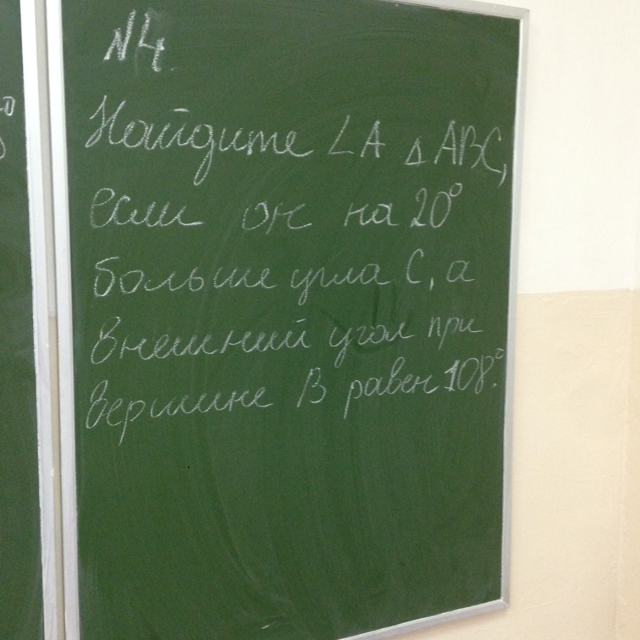 №4.
Найдите ∠A △ABC,
если он на 20°
больше угла C, а
внешний угол при
вершине B равен 108°.